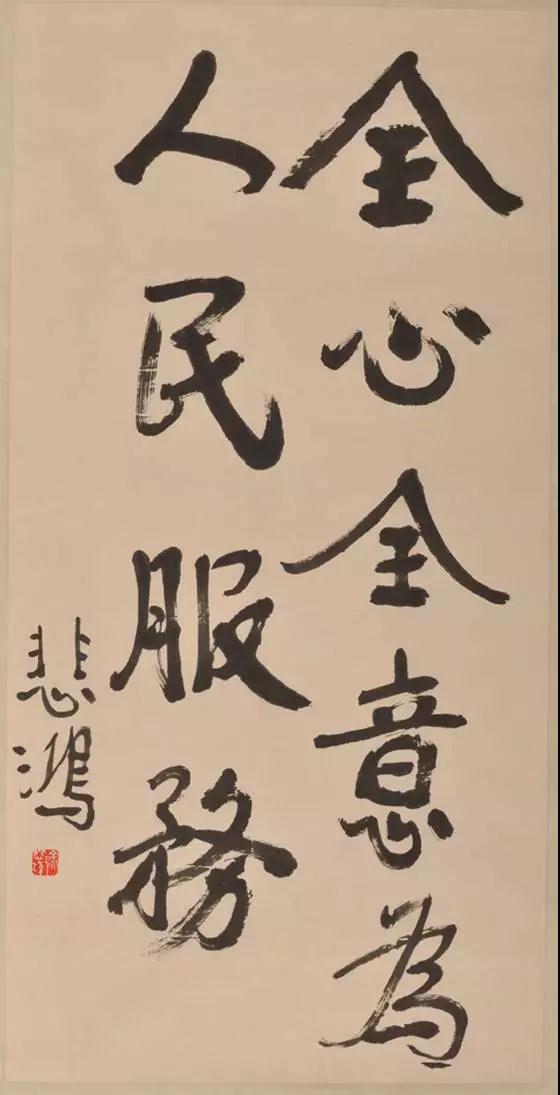 全心全意為
人民服務
悲鴻